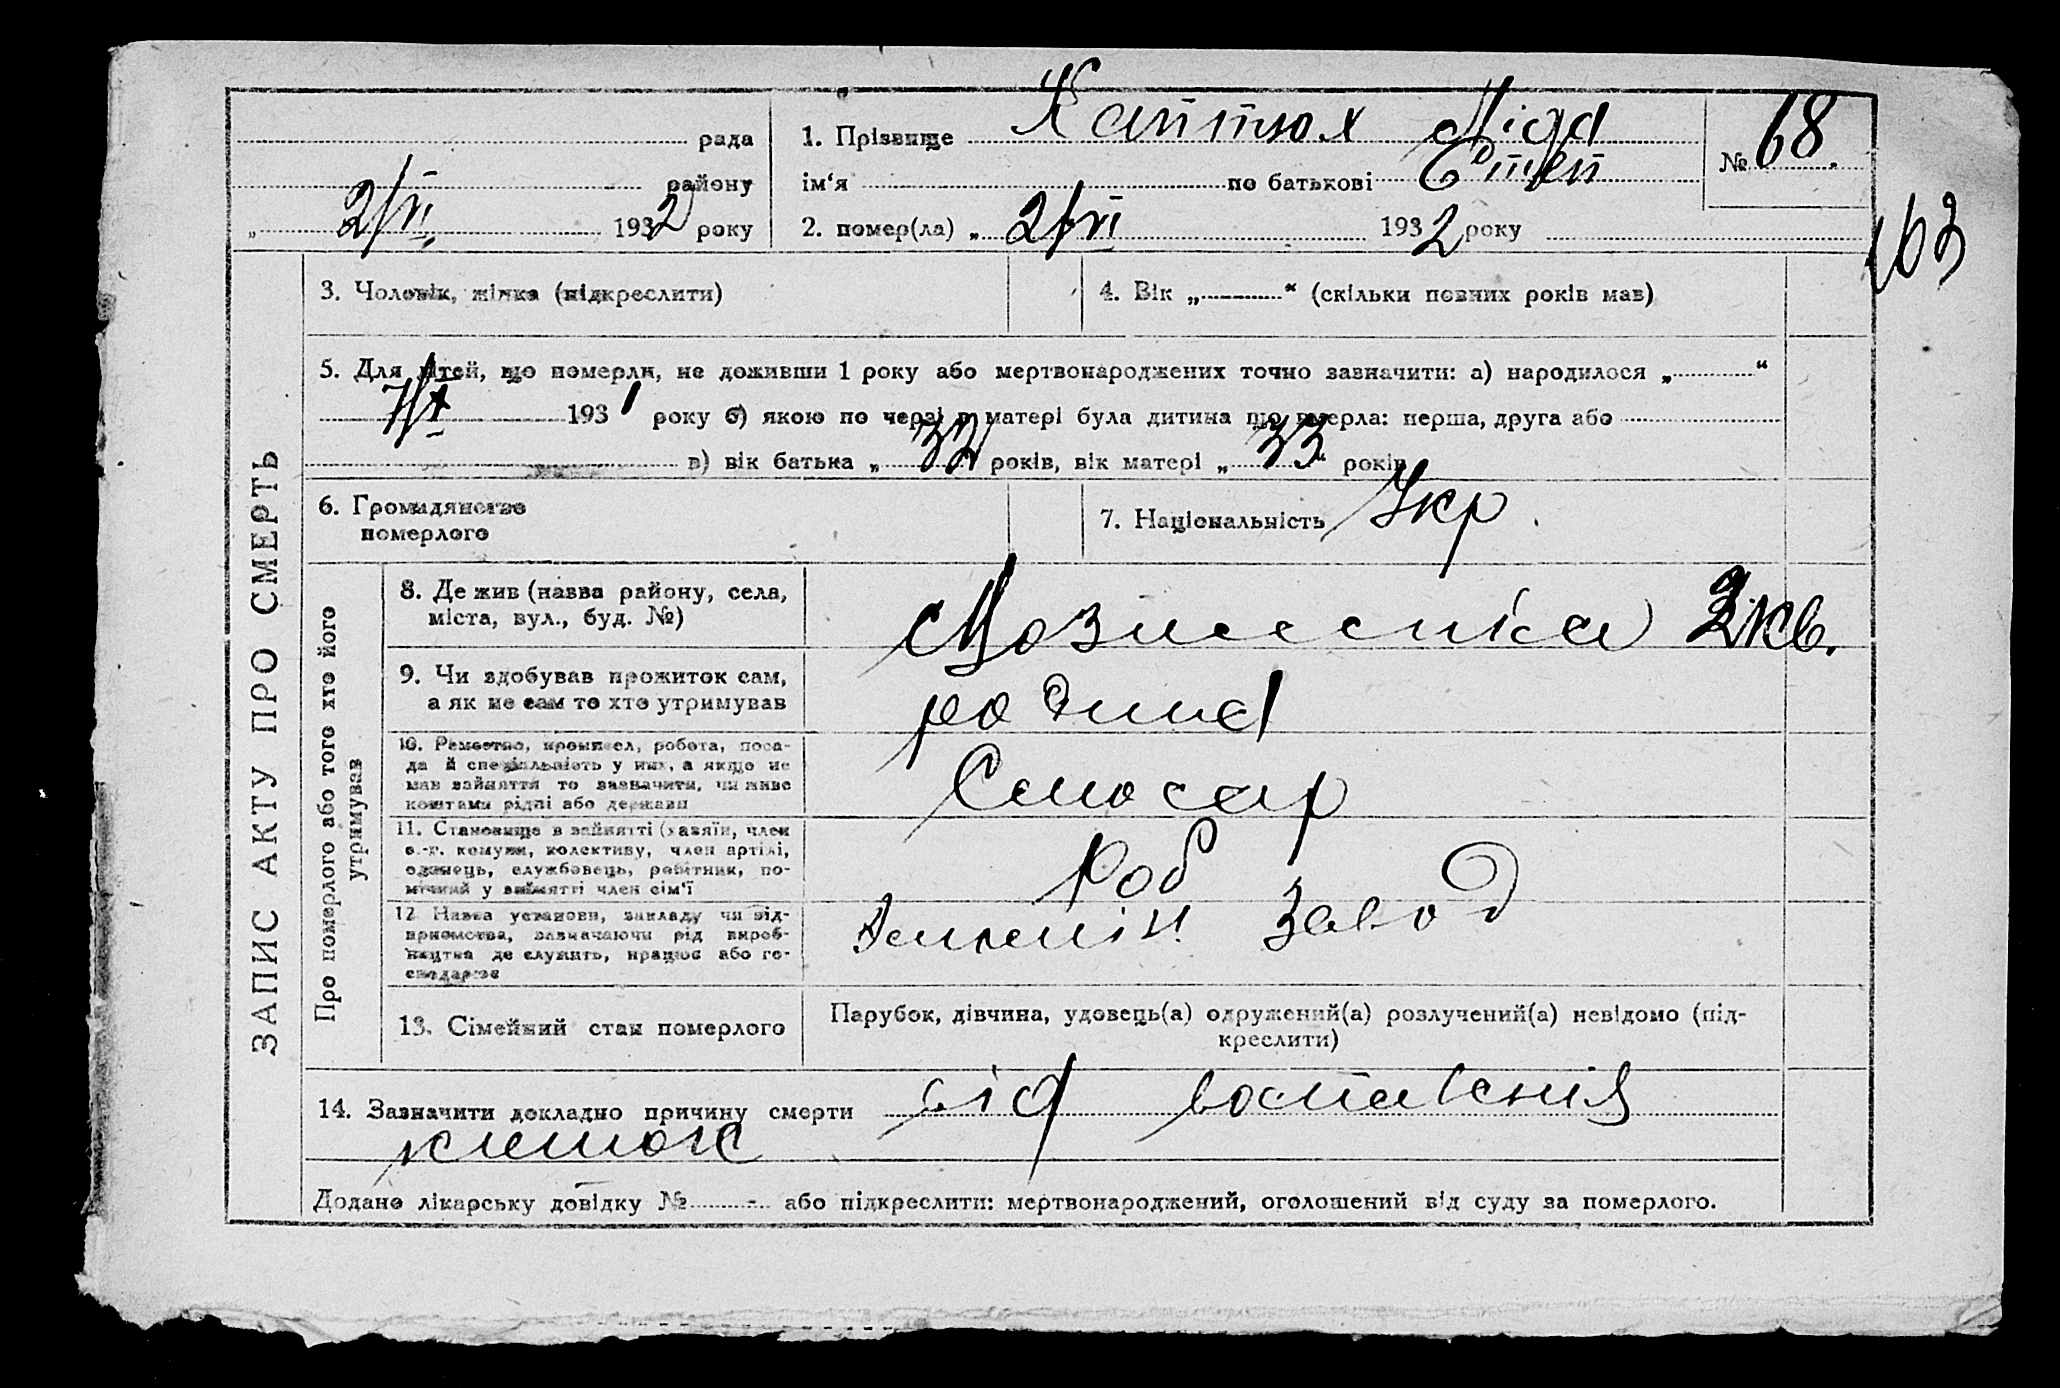 рада
району
„ 2/VI. 1932 року
1. Прізвище Каптюх Ліда
ім‘я по батькові Степ
2. помер(ла) „ 2/VI 1932 року
№ 68.
163
ЗАПИС АКТУ ПРО СМЕРТЬ
3. Чоловік, жінка (підкреслити)
4. Вік „ “ (скільки повних років мав)
5. Для дітей, що померли, не доживши 1 року або мертвонароджених точно зазначити: а) народилося „ “
7/X 1931 року б) якою по черзі в матері була дитина що вмерла: перша, друга або
в) вік батька „ 32 років, вік матері „ 33 “ років
6. Громадянство
померлого
7. Національність Укр.
Про померлого або того хто його
утримував
8. Де жив (назва району, села,
міста, вул., буд. №)
кв.
9. Чи здобував прожиток сам,
а як не сам то хто утримував
родина
10. Ремество, промисел, робота, поса-
да й спеціальність у них, а якщо не
мав зайняття то зазначити, чи живе
коштами рідні або держави
Слюсар
11. Становище в зайнятті (хазяїн, член
с.-г. комуни, колективу, член артілі,
одинець, службовець, робітник, по-
мічний у зайнятті член сім‘ї
Роб
12 Назва установи, закладу чи під-
приємства, зазначаючи рід вироб-
ництва де служить, працює або го-
сподарює
Завод
13. Сімейний стан померлого
Парубок, дівчина, удовець(а) одружений(а) розлучений(а) невідомо (під-
креслити)
14. Зазначити докладно причину смерти від воспаления
кишок
Додано лікарську довідку № - або підкреслити: мертвонароджений, оголошений від суду за померлого.